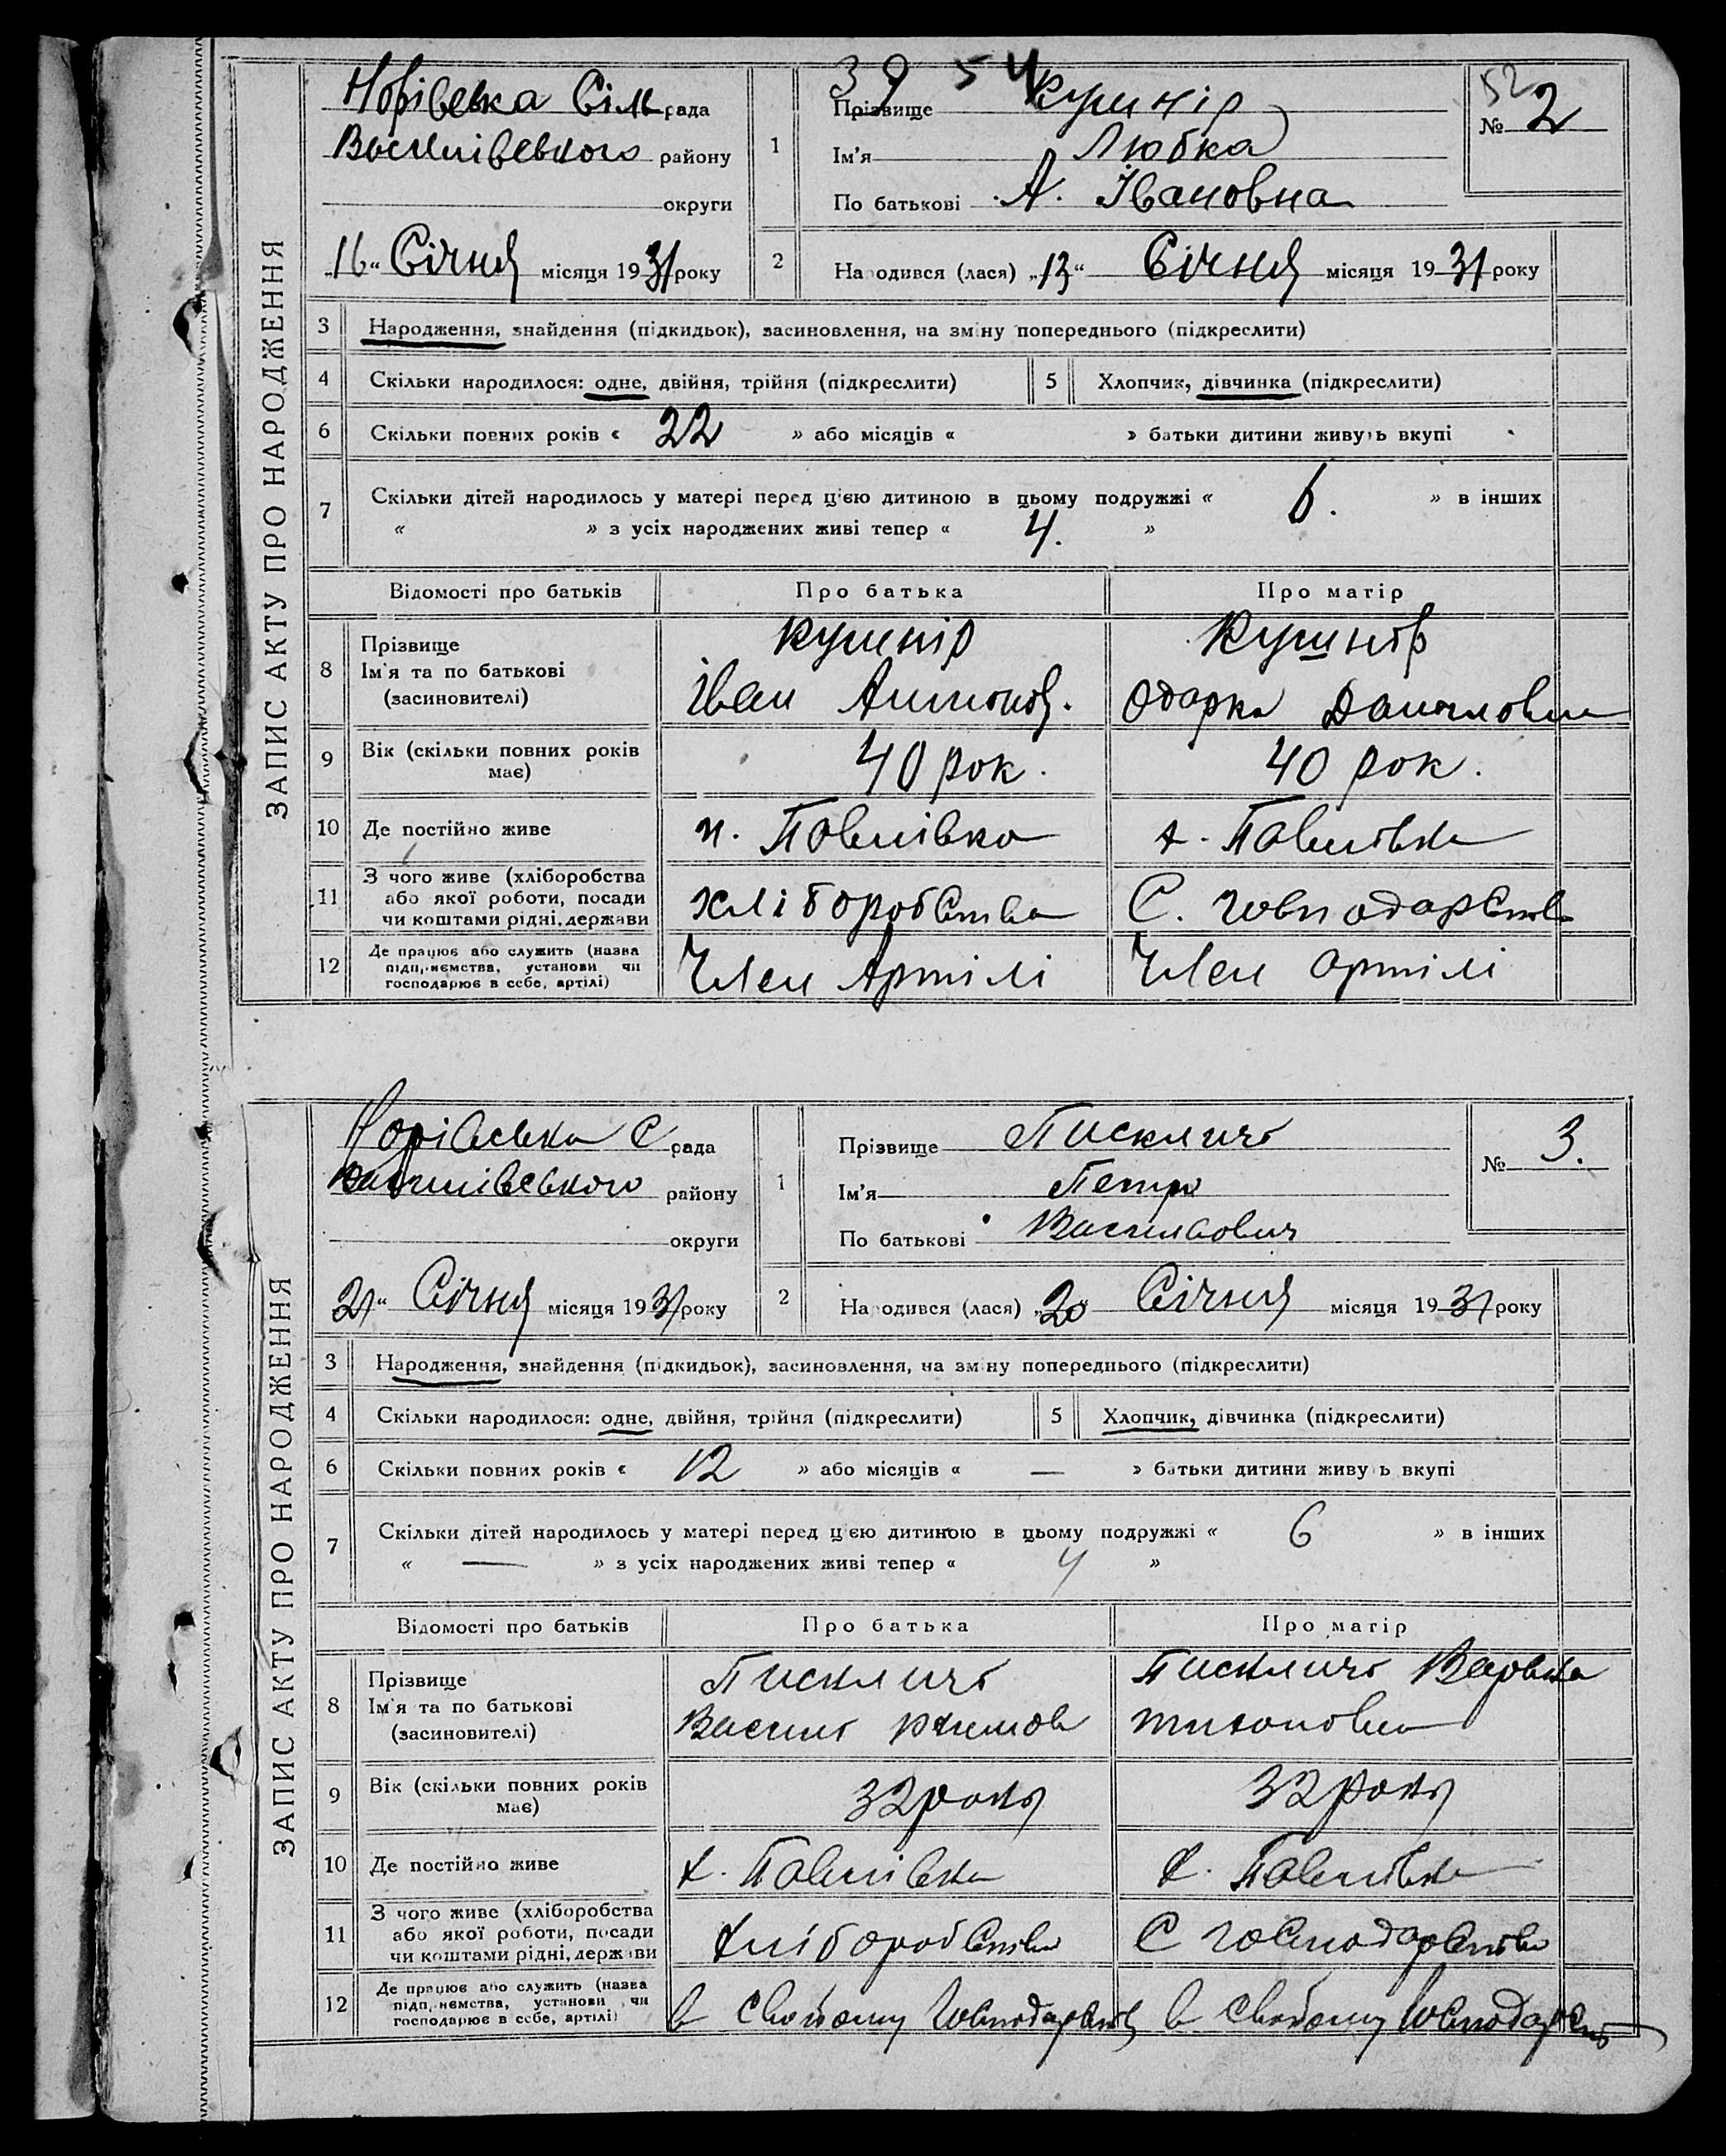 ЗАПИС АКТУ ПРО НАРОДЖЕННЯ
39 54
52
рада
району
округи
„16“ Січня місяця 1931 року
1
Прізвище Кушнір
Ім'я Любка
По батькові А. Івановна
№ 2
2
Народився (лася) „13“ Січня місяця 1931 року
3 Народження, знайдення (підкидьок), засиновлення, на зміну попереднього (підкреслити)
4 Скільки народилося: одне, двійня, трійня (підкреслити) 5 Хлопчик, дівчинка (підкреслити)
6 Скільки повних років « 22 » або місяців « » батьки дитини живуть вкупі
7 Скільки дітей народилось у матері перед цією дитиною в цьому подружжі « 6. » в інших
« » з усіх народжених живі тепер « 4. »
Відомості про батьків Про батька Про матір
8 Прізвище Кушнір Кушнір
Ім'я та по батькові Іван Антонов. Одарка Даниловна
(засиновителі)
9 Вік (скільки повних років має) 40 рок. 40 рок.
10 Де постійно живе х. Павлівка х. Павлівка
11 З чого живе (хліборобства або якої роботи, посади чи коштами рідні, держави хліборобства С. господарства
12 Де працює або служить (назва підприємства, установи чи господарює в себе, артілі) Член Артілі Член артілі
ЗАПИС АКТУ ПРО НАРОДЖЕННЯ
С рада
району
округи
21“ Січня місяця 1931 року
1
Прізвище Пискличь
Ім'я Петро
По батькові Васильович
№ 3.
2
Народився (лася) „20“ Січня місяця 1931 року
3 Народження, знайдення (підкидьок), засиновлення, на зміну попереднього (підкреслити)
4 Скільки народилося: одне, двійня, трійня (підкреслити) 5 Хлопчик, дівчинка (підкреслити)
6 Скільки повних років « 12 » або місяців « — » батьки дитини живуть вкупі
7 Скільки дітей народилось у матері перед цією дитиною в цьому подружжі « 6 » в інших
« — » з усіх народжених живі тепер « 4 »
Відомості про батьків Про батька Про матір
8 Прізвище Пискличь Пискличь Варвка
Ім'я та по батькові Василь Тихоновна
(засиновителі)
9 Вік (скільки повних років має) 32 роки 32 роки
10 Де постійно живе х. Павлівка х. Павлівка
11 З чого живе (хліборобства або якої роботи, посади чи коштами рідні, держави хліборобства С господарства
12 Де працює або служить (назва підприємства, установи чи господарює в себе, артілі) в свойому господарств в свойому господарств